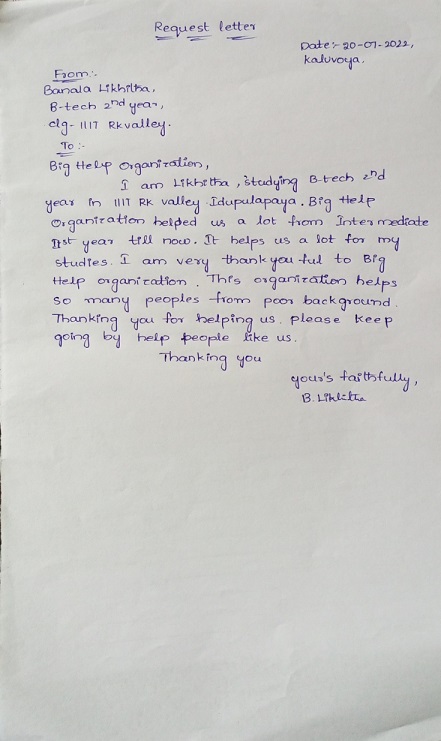 Request letter
Date:- 20-07-2022,
Kaluvoya.
From:-
Banala Likhitha,
B-tech 2nd year,
clg- IIIT Rkvalley.
To:-
Big Help Organization,
I am Likhitha, studying B-tech 2nd
year in IIIT RK valley Idupulapaya. Big Help
Organization helped us a lot from Intermediate
Ist year till now. It helps us a lot for my
studies. I am very thank you ful to Big
Help organization. This organization helps
so many peoples from poor background.
Thanking you for helping us. please keep
going by help people like us.
Thanking you
your's faithfully,
B. Likhitha